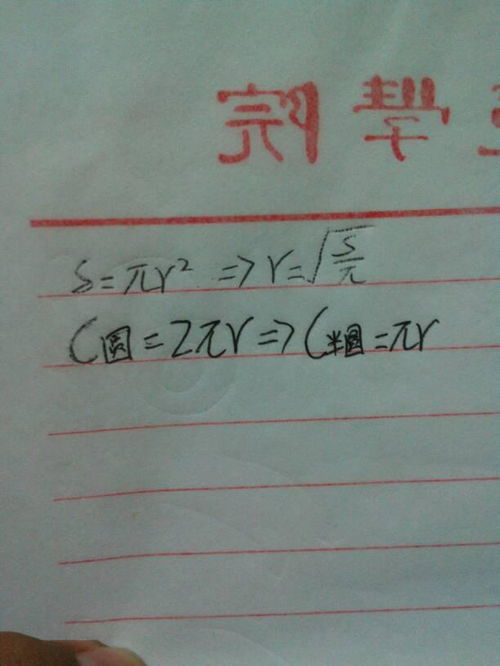 學院
S=πr² => r=√(S/π)
C圆=2πr=>C半圆=πr